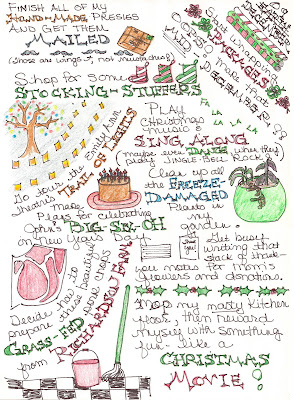 FINISH ALL OF MY
HAND-MADE PRESSIES
AND GET THEM
MAILED
(those are wings, not mustaches)
OOPSIE!
PACKAGES
DECEMBER
Shop for some
STOCKING-STUFFERS
Go tour the Emily Ann
theatre's TRAIL OF LIGHTS
PLAY
CHRISTMAS
music &
SING ALONG
maybe even DANCE when they
play JINGLE BELL ROCK
FA LA
LA LA LA
make
plans for celebrating
John's BIG SIX-OH
on New Year's Day
Clean up all
the FREEZE-
DAMAGED
plants in
my
garden.
Get busy
writing that
stack of thank-
you notes for mom's
flowers and donations.
Decide how to
prepare those beautiful
GRASS-FED lamb chops
from RICHARDSON FARM
Mop my nasty kitchen
floor, then reward
myself with something
fun like a
CHRISTMAS
MOVIE!